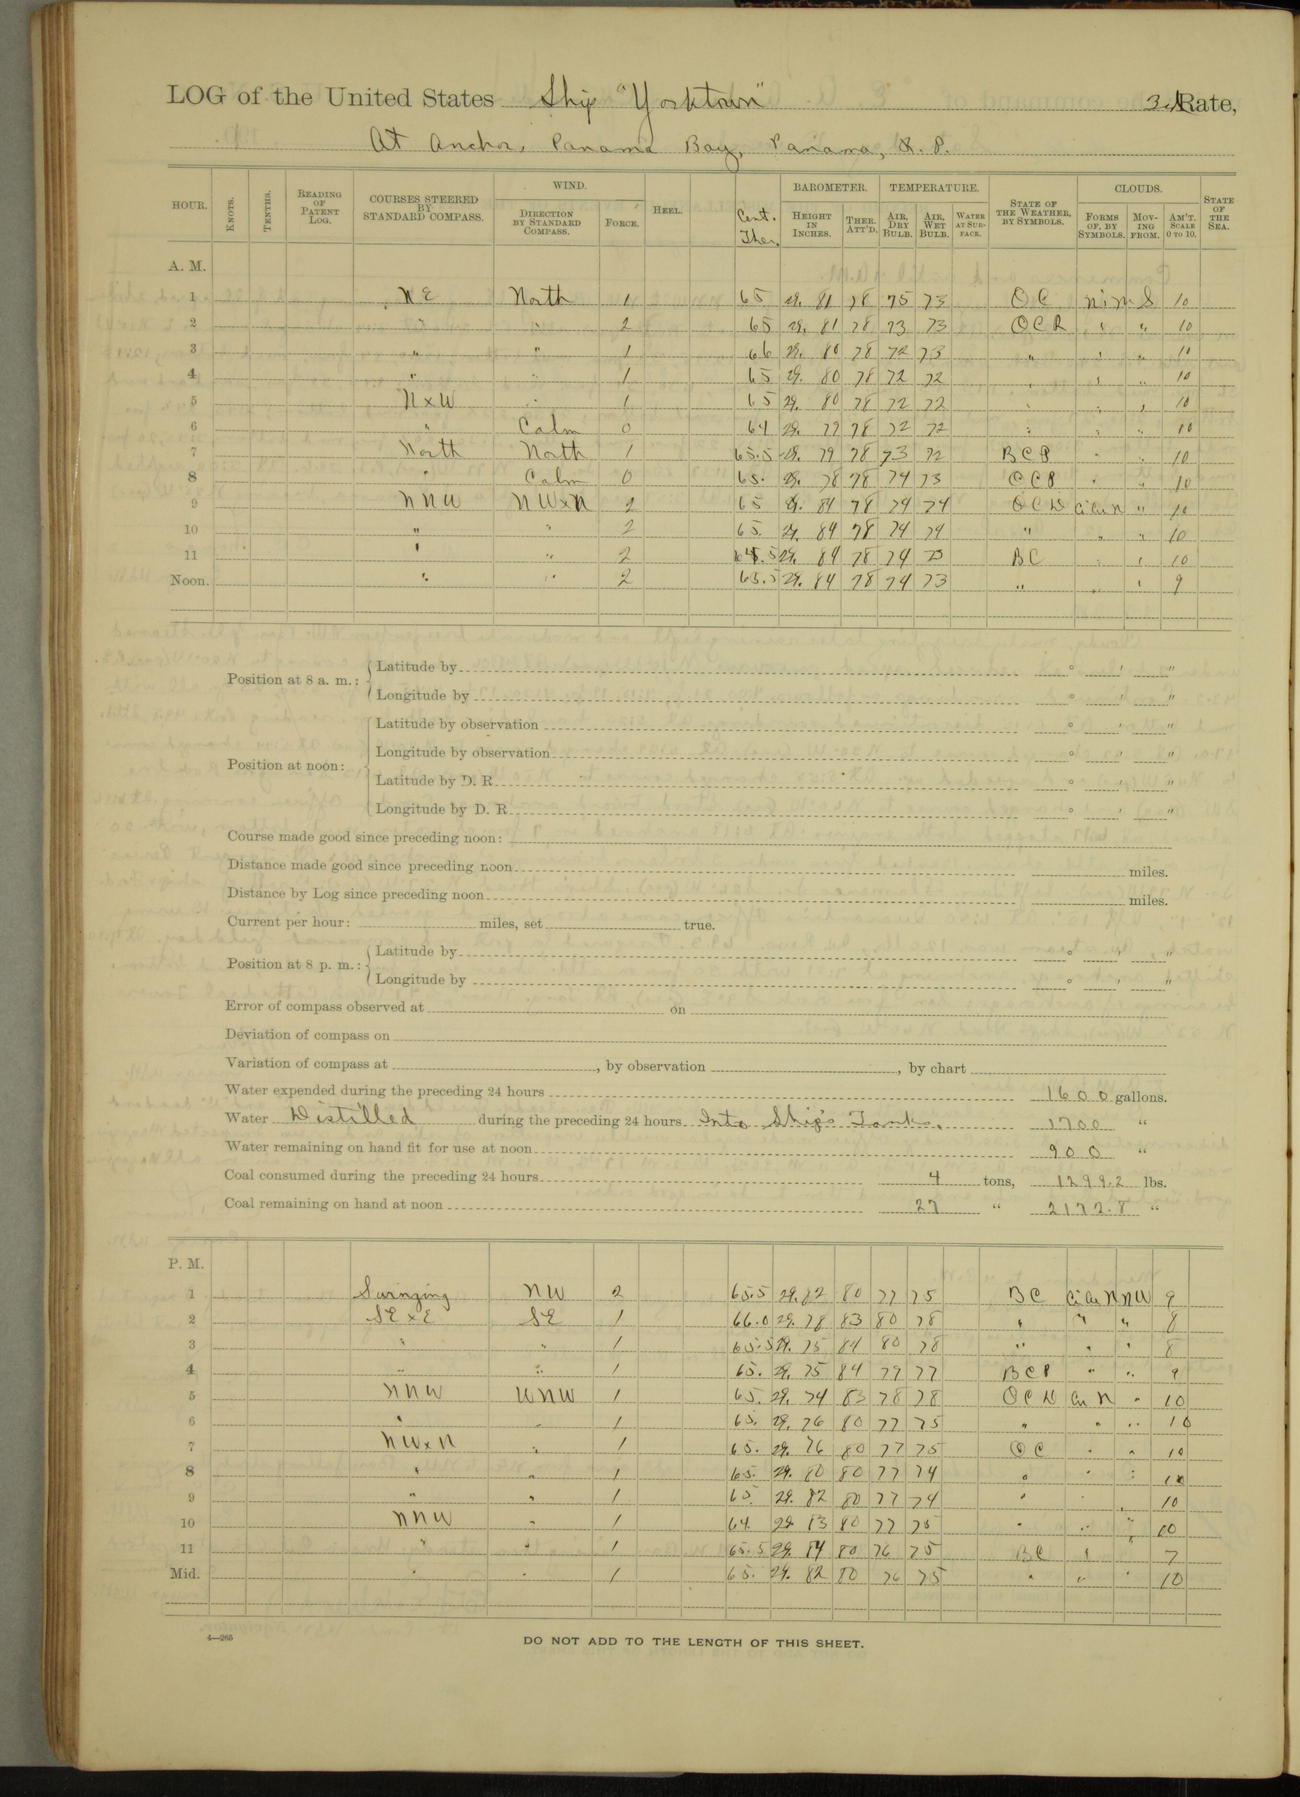 LOG of the United States Ship "Yorktown" 3d Rate,
At Anchor, Panama Bay, Panama, R. P.
HOUR. KNOTS. TENTHS. READING OF PATENT LOG. COURSES STEERED BY STANDARD COMPASS. WIND. DIRECTION BY STANDARD COMPASS. FORCE. HEEL. Cent. Ther. BAROMETER. HEIGHT IN INCHES. THER. ATT'D. TEMPERATURE. AIR, DRY BULB. AIR, WET BULB. WATER AT SURFACE. STATE OF THE WEATHER, BY SYMBOLS. CLOUDS. FORMS OF, BY SYMBOLS. MOVING FROM. AM'T. SCALE 0 TO 10. STATE OF THE SEA.
A. M.
1 NE North 1 65 29. 81 78 75 73 OC Nim S 10
2 " " 2 65 29. 81 78 73 73 OCR " " 10
3 " " 1 66 29. 80 78 72 73 " " " 10
4 " " 1 65 29. 80 78 72 72 " " " 10
5 NxW " 1 65 29. 80 78 72 72 " " " 10
6 " Calm 0 64 29. 79 78 72 72 " " " 10
7 North North 1 65.5 29. 79 78 73 72 BCP " " 10
8 " Calm 0 65. 29. 78 78 74 73 OCP " " 10
9 NNW NWxN 2 65 29. 84 78 74 74 OCD Ci Cu N " 10
10 " " 2 65. 29. 84 78 74 74 " " " 10
11 " " 2 65.5 29. 84 78 74 73 BC " " 10
Noon. " " 2 65.5 29. 84 78 74 73 " " " 9
Position at 8 a. m.: Latitude by ° ' "
Longitude by ° ' "
Position at noon: Latitude by observation ° ' "
Longitude by observation ° ' "
Latitude by D. R. ° ' "
Longitude by D. R. ° ' "
Course made good since preceding noon:
Distance made good since preceding noon miles.
Distance by Log since preceding noon miles.
Current per hour: miles, set true.
Position at 8 p. m.: Latitude by ° ' "
Longitude by ° ' "
Error of compass observed at on
Deviation of compass on
Variation of compass at , by observation , by chart
Water expended during the preceding 24 hours 1600 gallons.
Water Distilled during the preceding 24 hours Into Ship's Tanks. 1700 "
Water remaining on hand fit for use at noon 900 "
Coal consumed during the preceding 24 hours 4 tons, 1299.2 lbs.
Coal remaining on hand at noon 27 " 2172.8 "
P. M.
1 Swinging NW 2 65.5 29. 82 80 77 75 BC Ci Cu N NW 9
2 SExE SE 1 66.0 29. 78 83 80 78 " " " 8
3 " " 1 65.5 29. 75 84 80 78 " " " 8
4 " " 1 65. 29. 75 84 79 77 BCP " " 9
5 NNW WNW 1 65. 29. 74 83 78 78 OCD Cu N " 10
6 " " 1 65. 29. 76 80 77 75 " " " 10
7 NWxN " 1 65. 29. 76 80 77 75 OC " " 10
8 " " 1 65. 29. 80 80 77 74 " " " 10
9 " " 1 65. 29. 82 80 77 74 " " 10
10 NNW " 1 64. 29. 83 80 77 75 " " " 10
11 " " 1 65.5 29. 84 80 76 75 BC " " 7
Mid. " " 1 65. 29. 82 80 76 75 " " " 10
4—265
DO NOT ADD TO THE LENGTH OF THIS SHEET.